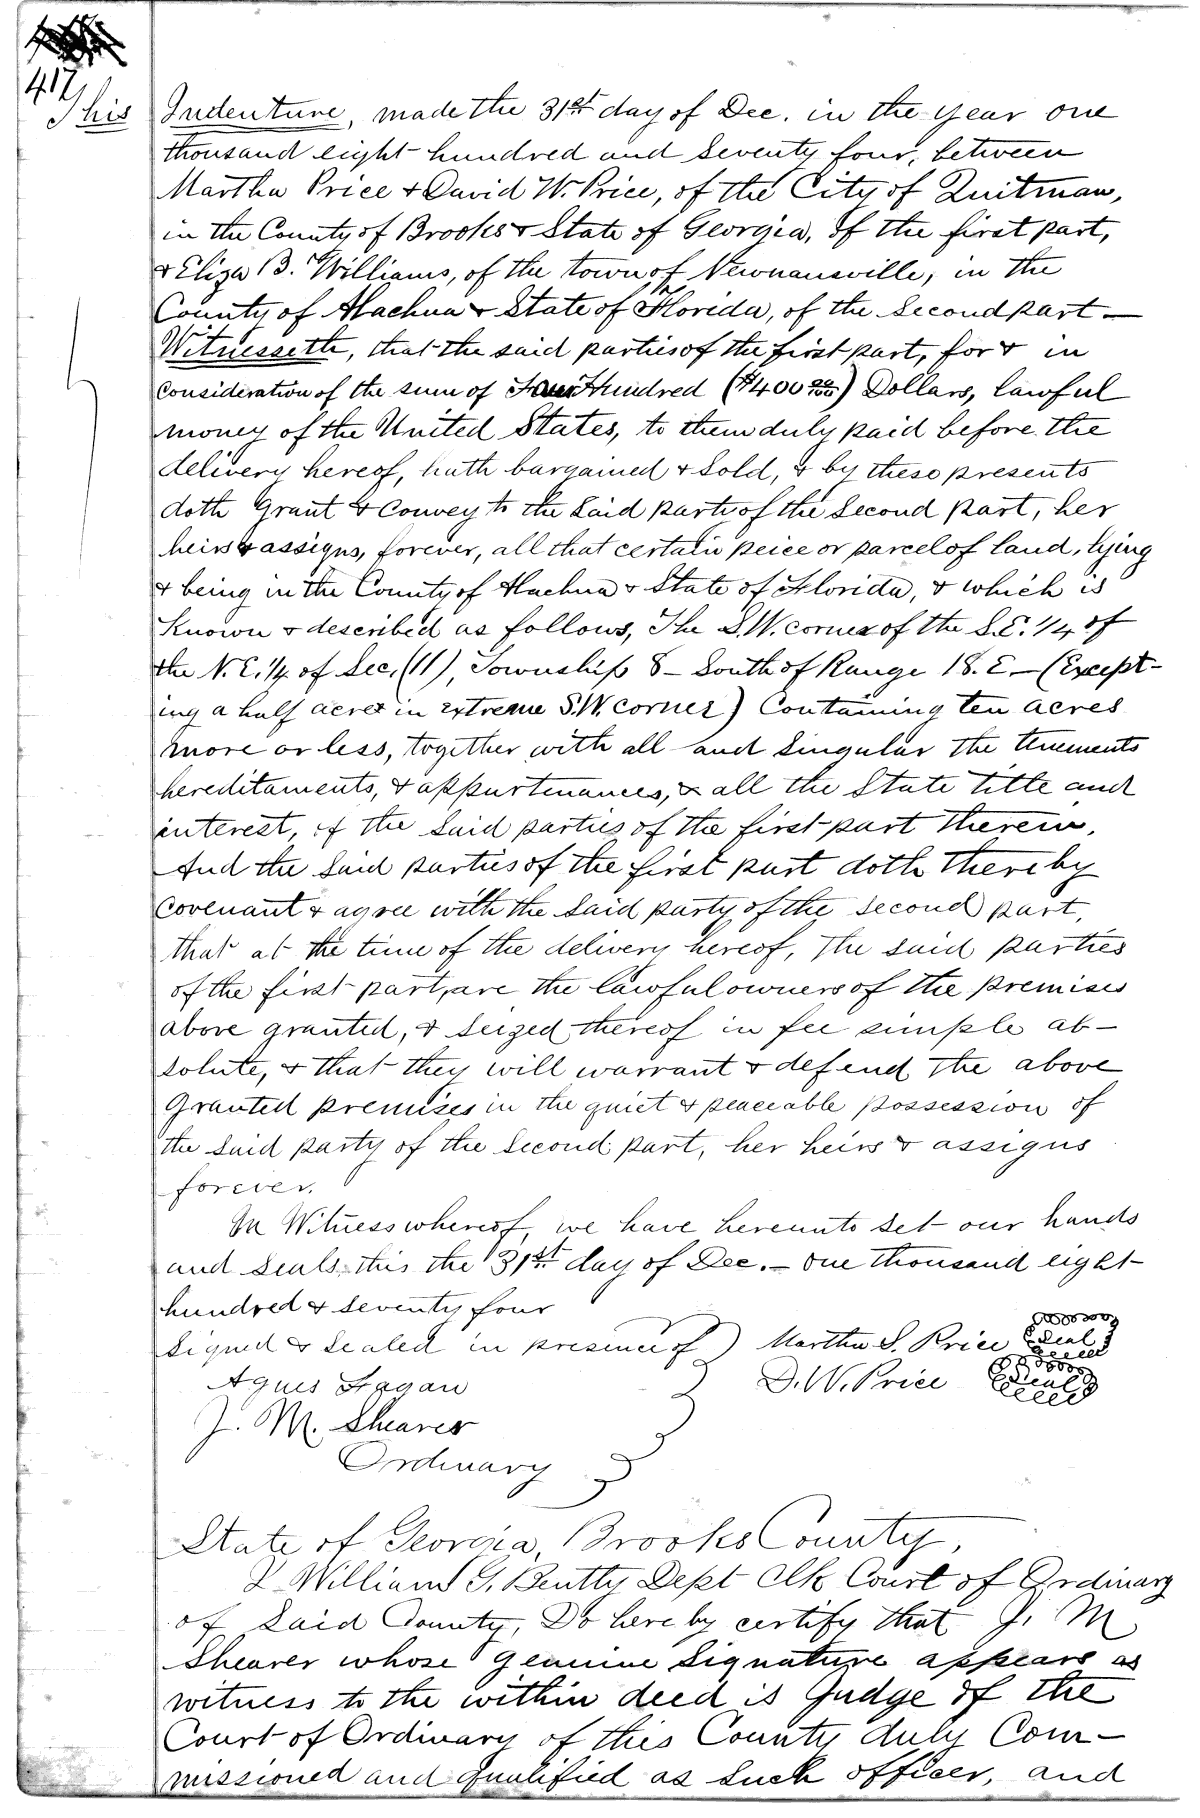 417
This Indenture, made the 31st day of Dec. in the year one
thousand eight hundred and seventy four, between
Martha Price & David W. Price, of the City of Quitman,
in the County of Brooks & State of Georgia, of the first part,
& Eliza B. Williams, of the town of Newnansville, in the
County of Alachua & State of Florida, of the Second part —
Witnesseth, that the said parties of the first part, for & in
consideration of the sum of Four Hundred ($400 00/100) Dollars, lawful
money of the United States, to them duly paid before the
delivery hereof, hath bargained & Sold, & by these presents
doth Grant & Convey to the Said party of the Second part, her
heirs & assigns, forever, all that certain peice or parcel of land, lying
& being in the County of Alachua & State of Florida, & which is
Known & described as follows, The S.W. corner of the S.E. 1/4 of
the N.E. 1/4 of Sec. (11), Township 8 – South of Range 18. E – (Except-
ing a half acre in extreme S.W. corner) Containing ten acres
more or less, together with all and Singular the tenements
hereditaments, & appurtenances, & all the State title and
interest, of the Said parties of the first part therein.
And the Said parties of the first part doth thereby
covenant & agree with the Said party of the second part,
that at the time of the delivery hereof, The said parties
of the first part, are the lawful owners of the premises
above granted, & Seized thereof in fee simple ab-
solute, & that they will warrant & defend the above
Granted premises in the quiet & peaceable possession of
the Said party of the Second part, her heirs & assigns
forever.
In Witness whereof, we have hereunto Set our hands
and Seals this the 31st day of Dec. – one thousand eight-
hundred & Seventy four
Signed & Sealed in presence of } Martha S. Price (Seal)
Agnes Fagan } D. W. Price (Seal)
J. M. Shearer
Ordinary
State of Georgia, Brooks County,
I William G. Bentley Dept Clk Court of Ordinary
of Said County, Do hereby certify that J. M
Shearer whose genuine Signature appears as
witness to the within deed is Judge of the
Court of Ordinary of this County duly Com-
missioned and qualified as Such officer, and